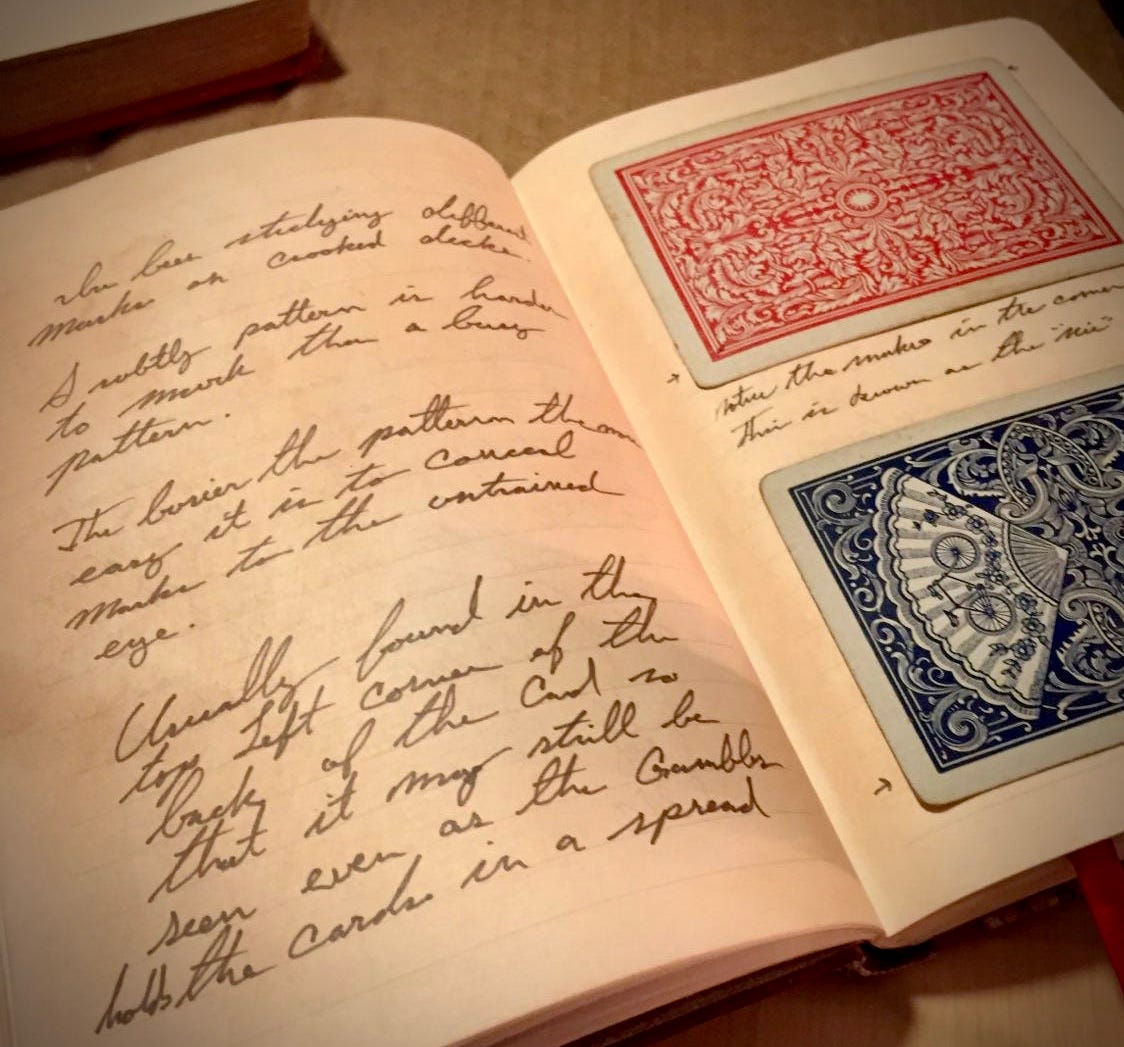 Ive been studying different
marks on crooked decks.
A subtly pattern is harder
to mark then a busy
pattern.
The busier the pattern the more
easy it is to conceal
marks to the untrained
eye.
Usually found in the
top Left corner of the
back of the Card so
that it may still be
seen even as the Gambler
holds the cards in a spread
notice the marks in the corner
This is known as the